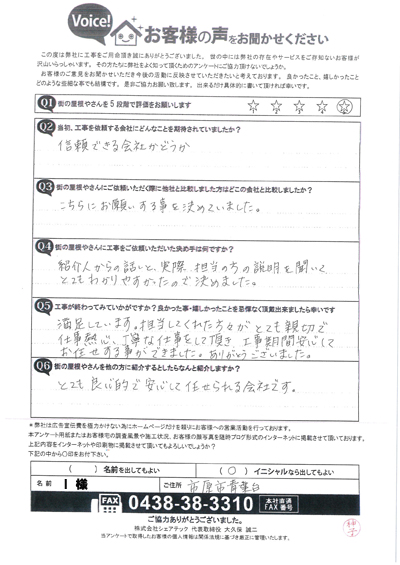 Voice!
お客様の声をお聞かせください
この度は弊社に工事をご用命頂き誠にありがとうございました。世の中には弊社の存在やサービスをご存知ないお客様が
沢山いらっしゃいます。その方たちに弊社をよく知って頂くためのアンケートにご協力頂けないでしょうか。
お客様のご意見をお聞かせいただき今後の活動に反映させていただきたいと考えております。良かったこと、嬉しかったこと
どのような些細な事でも結構です。是非ご協力お願い致します。出来るだけ具体的に書いて頂ければ幸いです。
Q1 街の屋根やさんを5段階で評価をお願いします ☆ ☆ ☆ ☆ ☆
Q2 当初、工事を依頼する会社にどんなことを期待されていましたか?
信頼できる会社かどうか
Q3 街の屋根やさんにご依頼いただく際に他社と比較しました方はどこの会社と比較しましたか?
こちらにお願いする事を決めていました。
Q4 街の屋根やさんに工事をご依頼いただいた決め手は何ですか?
紹介人からの話しと、実際、担当の方の説明を聞いて
とてもわかりやすかったので決めました。
Q5 工事が終わってみていかがですか?良かった事・嬉しかったことを忌憚なく頂戴出来ましたら幸いです
満足しています。担当してくれた方々がとても親切で
仕事熱心、丁寧な仕事をして頂き、工事期間安心して
お任せする事ができました。ありがとうございました。
Q6 街の屋根やさんを他の方に紹介するとしたらなんと紹介しますか?
とても良心的で安心して任せられる会社です。
*弊社は広告宣伝費を極力かけない為にホームページだけを頼りにお客様への営業活動を行っております。
本アンケート用紙またはお客様宅の調査風景や施工状況、お客様の顔写真を随時ブログ形式のインターネットに掲載させて頂いております。
上記内容をインターネットや印刷物に掲載させて頂いてもよろしいでしょうか?
下記の中から○印をお付け下さい。
( )名前を出してもよい (○)イニシャルなら出してもよい
名前 I 様 ご住所 市原市青葉台
FAX 0438-38-3310 本社直通 FAX番号
ご協力ありがとうございました。
株式会社シェアテック 代表取締役 大久保 誠二
当アンケートで取得したお客様の個人情報は関係法規に基づき厳正に管理いたします。